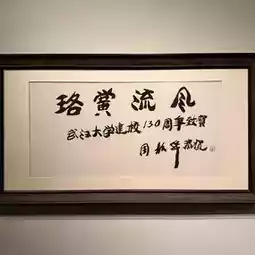 珞黉流风
武汉大学建校130周年致贺
周